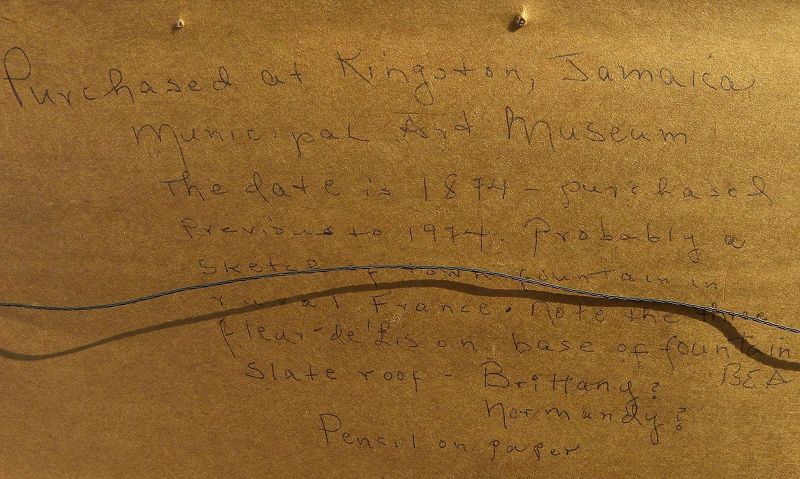 Purchased at Kingston, Jamaica
Municipal Art Museum
The date is 1874 - purchased
previous to 1974. Probably a
sketch of town fountain in
rural France. Note the three
fleur-de'Lis on base of fountain
Slate roof - Brittany? BEA
Normandy?
Pencil on paper